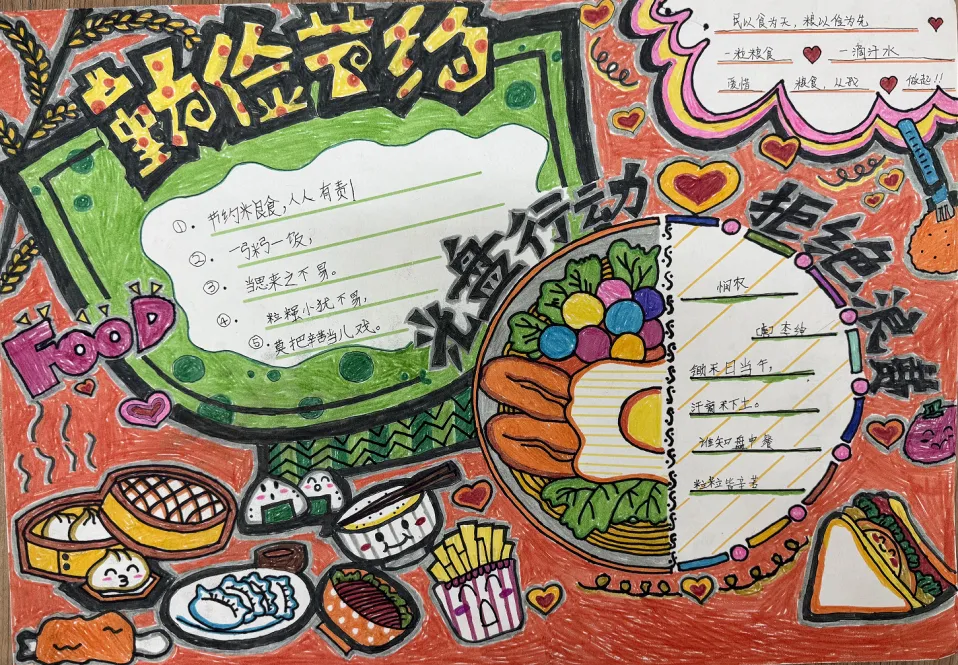 勤俭节约
民以食为天，粮以俭为先
一粒粮食 一滴汗水
爱惜 粮食，从我 做起!!
①. 节约粮食，人人有责
②. 一粥一饭，
③. 当思来之不易。
④. 粒粮小犹不易，
⑤. 莫把辛苦当儿戏。
FOOD
光盘行动
拒绝浪费
悯农
李绅
锄禾日当午，
汗滴禾下土。
谁知盘中餐
粒粒皆辛苦